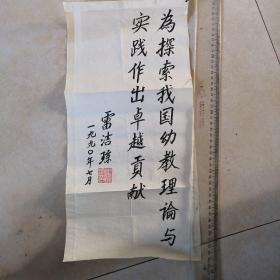 为探索我国幼教理論与
实践作出卓越貢献
雷洁琼
一九九〇年七月